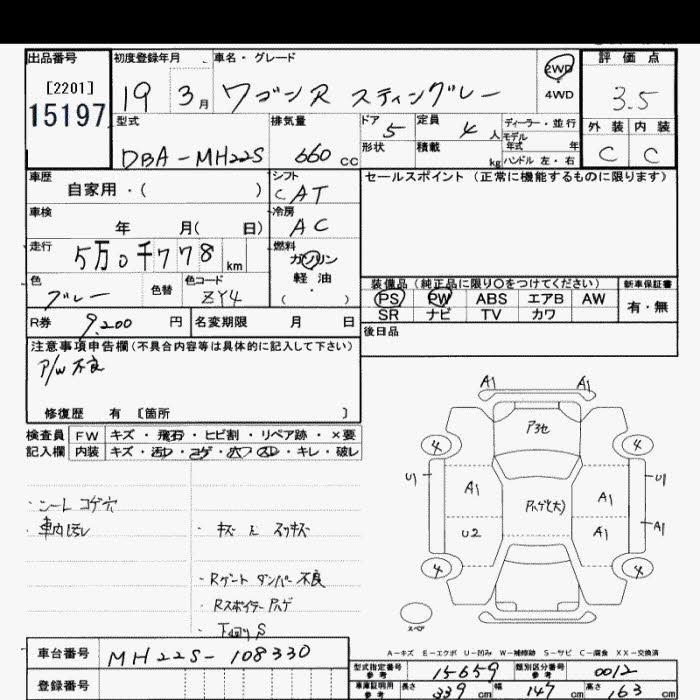 出品番号
[2201]
15197
初度登録年月
19 3月
車名・グレード
ワゴンR スティングレー
2WD
4WD
評価点
3.5
外装 内装
C C
型式
DBA-MH22S
排気量
660 cc
ドア 5
形状
定員 4 人
積載 kg
ディーラー・並行
モデル
年式 年
ハンドル 左・右
車歴
自家用・( )
シフト
CAT
セールスポイント (正常に機能するものに限ります)
車検
年 月( 日)
冷房
AC
走行
5万0千778 km
燃料
ガソリン
軽油
( ・ )
色
グレー
色替
色コード
ZY4
装備品 (純正品に限り○をつけてください)
PS PW ABS エアB AW
SR ナビ TV カワ
新車保証書
有・無
R券 9,200 円
名変期限 月 日
後日品
注意事項申告欄(不具合内容等は具体的に記入して下さい)
P/W不良
修復歴 有 [箇所 ]
検査員 FW キズ・飛石・ヒビ割・リペア跡・×要
記入欄 内装 キズ・汚れ・コゲ・穴・スレ・キレ・破レ
・シート コゲ穴
・Rゲート ダンパー不良
・Rスポイラー ハゲ
・下廻りS
A1 A1
4 4
U1 U1
A1 A1
U2 A1 A1
4 4
スペア
A-キズ E-エクボ U-凹み W-補修跡 S-サビ C-腐食 XX-交換済
車台番号 MH22S-108330
登録番号
型式指定番号
参考
15659
類別区分番号
参考
0012
車庫証明用
参考
長さ 339 cm 幅 147 cm 高さ 163 cm